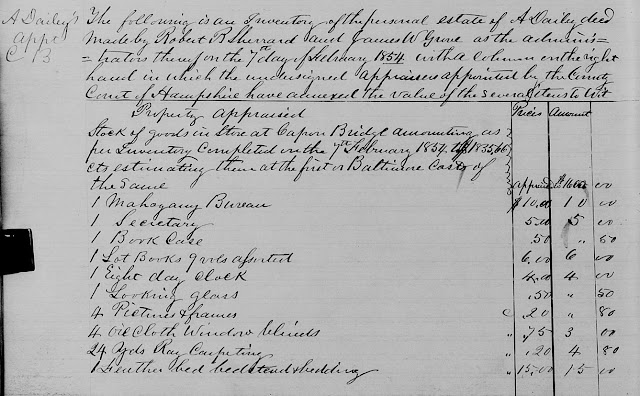 A Dailey's
Appt
C B
The following is an Inventory of the personal estate of A Dailey decd
made by Robert B Sherrard and James W Grove as the adminis=
=trators thereof on the 7th day of February 1854 with a column on the right
hand in which the undersigned Appraisers appointed by the County
Court of Hampshire have annexed the value of the several items to Wit
Property appraised Prices Amount
Stock of goods in Store at Capon Bridge amounting as
per Inventory Completed on the 7th February 1854 to $1835,66
cts estimating them at the first or Baltimore Costs of
the same appraised 00
1 Mahogany Bureau $10.00 10 00
1 Secretary 5.00 5 00
1 Book Case .50 " 50
1 Lot Books 9 vols assorted 6.00 6 00
1 Eight day Clock 4.00 4 00
1 Looking glass .50 " 50
4 Pictures & frames c .20 " 80
4 Oil Cloth Window blinds " .75 3 00
24 Yds Rag Carpeting " .20 4 80
1 Feather bed bedstead & bedding " 15.00 15 00